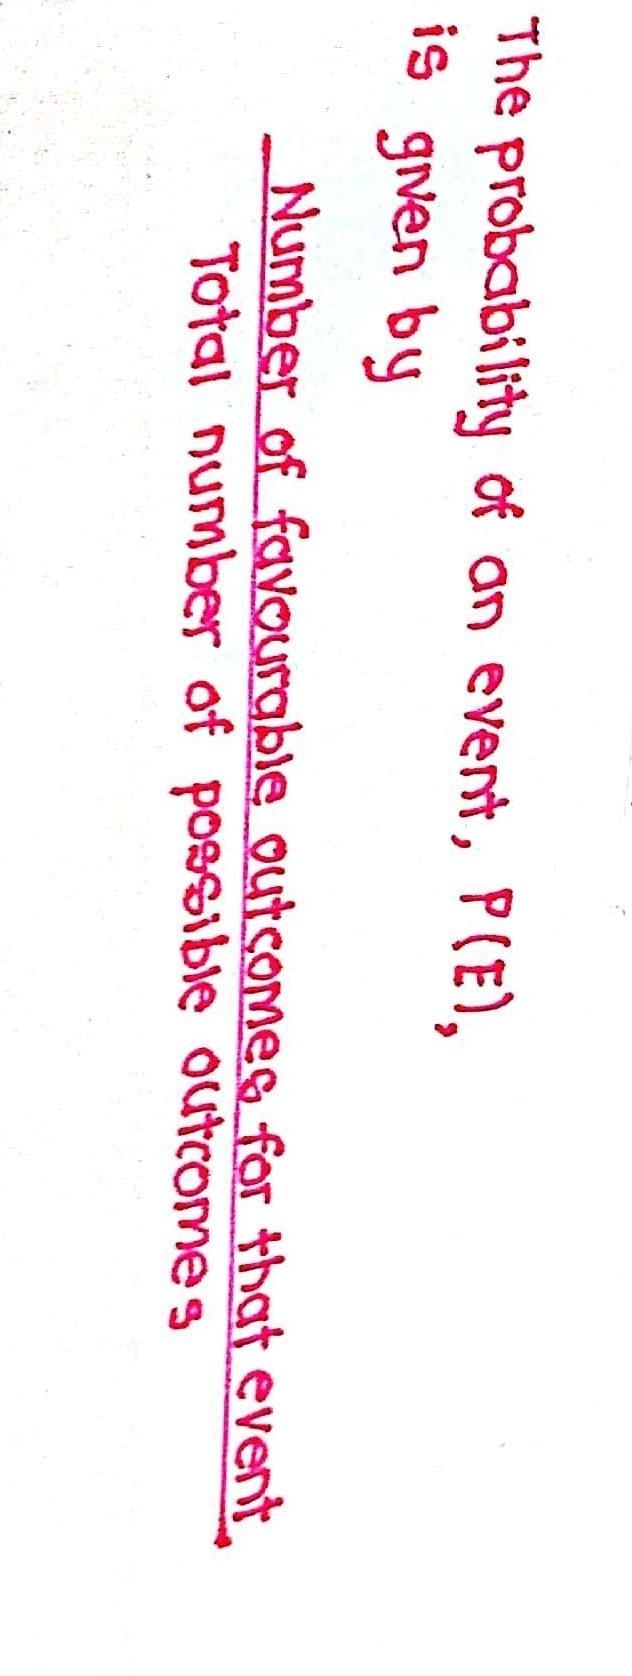 The probability of an event, P(E),
is given by
Number of favourable outcomes for that event
Total number of possible outcomes